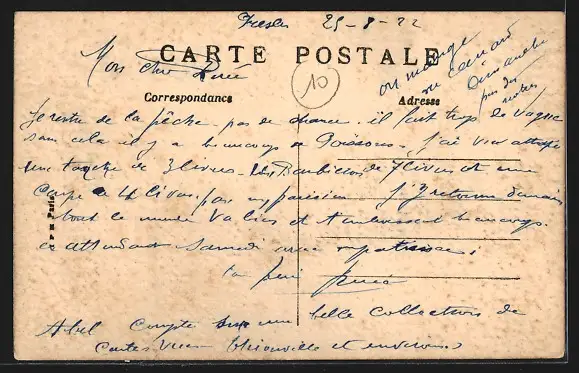 25-8-22
Mon cher
CARTE POSTALE
10
Correspondance
Adresse
on mange
un canard
dimanche
pas de
Je rentre de la pêche pas de chance il fait trop de vague
sans cela il y a beaucoup de Poissons j'ai vu
une de 3 livres de 7 livres et une
Carpe de 4 livres par un parisien J'y retourne demain
tout le monde va bien et t'embrassent beaucoup
en attendant Samedi avec impatience
ton
Abel compte sur une belle collection de
Cartes Vues Thionville et environs